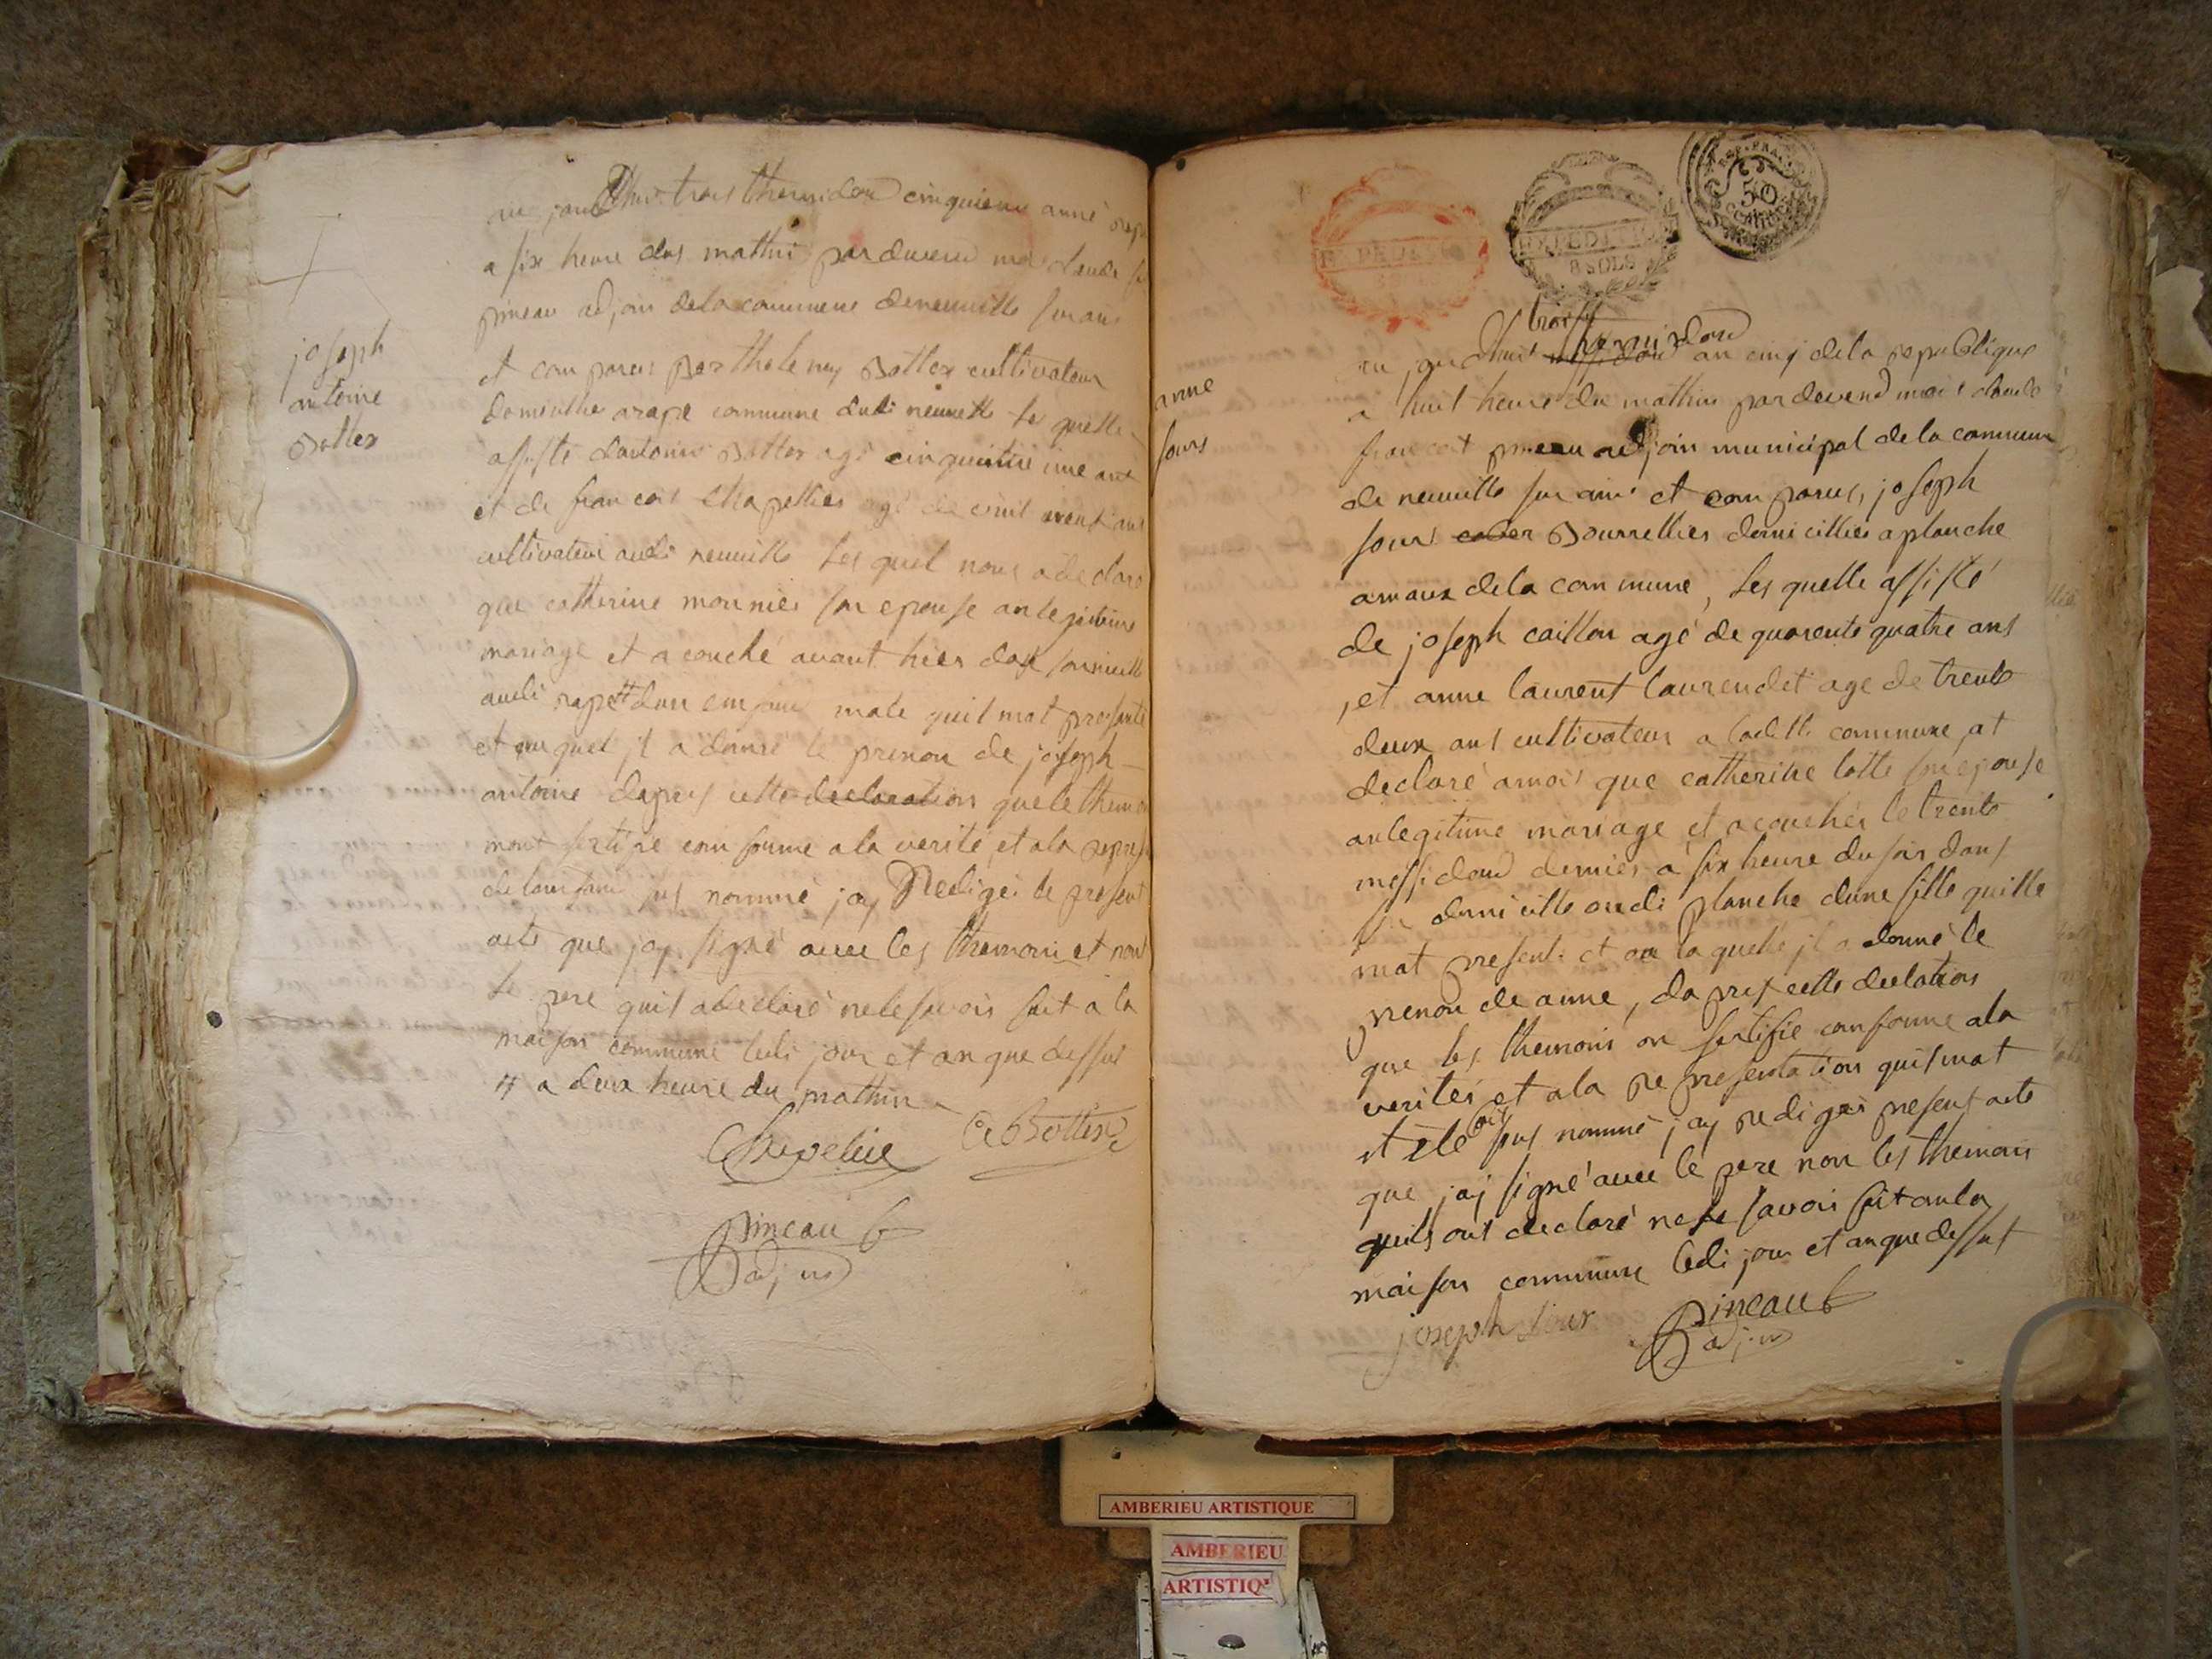 joseph
antoine
Bottex
au jourdhuit trois thermidore cinquieme anné repu
a six heure dus mathin par devend moi claude
pineau adjoin dela commune deneuville sur ain
et comparus Barthelemy Bottex cultivateur
domicilié arape commune dudi neuville les quelle
assisté dantoine Bottex agé cinquante une ans
et de francois Chapellier agé de vint ans
cultivateur audi neuville les quel nous a declaré
que catherine monnier son epouse an legitime
mariage et a couché avant hier dans
audi rape # dun enfant male quil mat presanté
et auquel jl a donné le prenon de joseph
antoine dapres cette declaration que le themoin
mont sertifié comforme a la verité, et ala
de lenfant sus nommé jay Redigé le present
acte que jay signé avec les themoin et non
le pere quil a declaré nele savoir fait a la
maison commune ledi jour et an que dessus
# a deux heure du mathin
Chapelier A Bottex
pineau
adjoin
anne
sours
EXPEDITION
EXPEDITION
8 SOLS
REP. FRA.
50
CENTIMES
trois thermidore
au jourdhuit messidore an cinq dela republique
a huit heure du mathin pardevend moi claude
francoit pineau adjoin municipal de la commune
de neuville sur ain et comparus, joseph
sours Bourrellier domicillier a planche
amaux dela commune, Les quelle assisté
de joseph caillon agé de quarente quatre ans
, et anne laurent laurendet age de trente
deux ans cultivateur a ladette commune, at
declaré amoi que catherine lotte son epouse
anlegitime mariage et acouchér le trente
messidore dernier a six heure du soir dans
domicille audi planche dune fille quille
mat presenté et au laquelle jl a donné le
prenon de anne, da pres cette declation
que les themoins on sertifie comforme ala
verités et ala representation quil mat
et été sus nommé jay redigés present acte
que jay signé avec le pere non les themoin
quils ont declaré ne le savoir fait aula
maison commune ledi jour et anque dessut
joseph sour pineau
adjoin
AMBERIEU ARTISTIQUE
AMBERIEU
ARTISTIQ